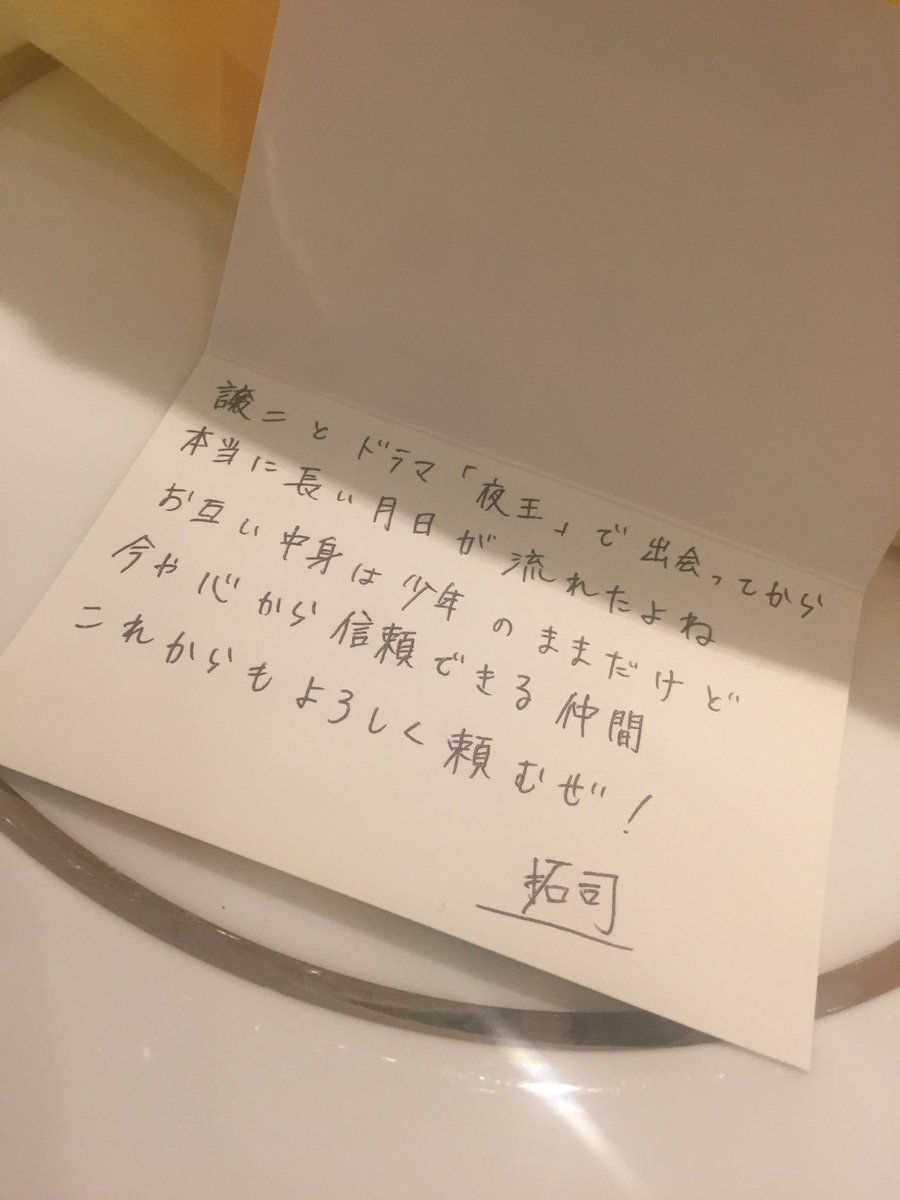 譲二とドラマ「夜王」で出会ってから
本当に長い月日が流れたよね
お互い中身は少年のままだけど
今や心から信頼できる仲間
これからもよろしく頼むぜ！
拓司